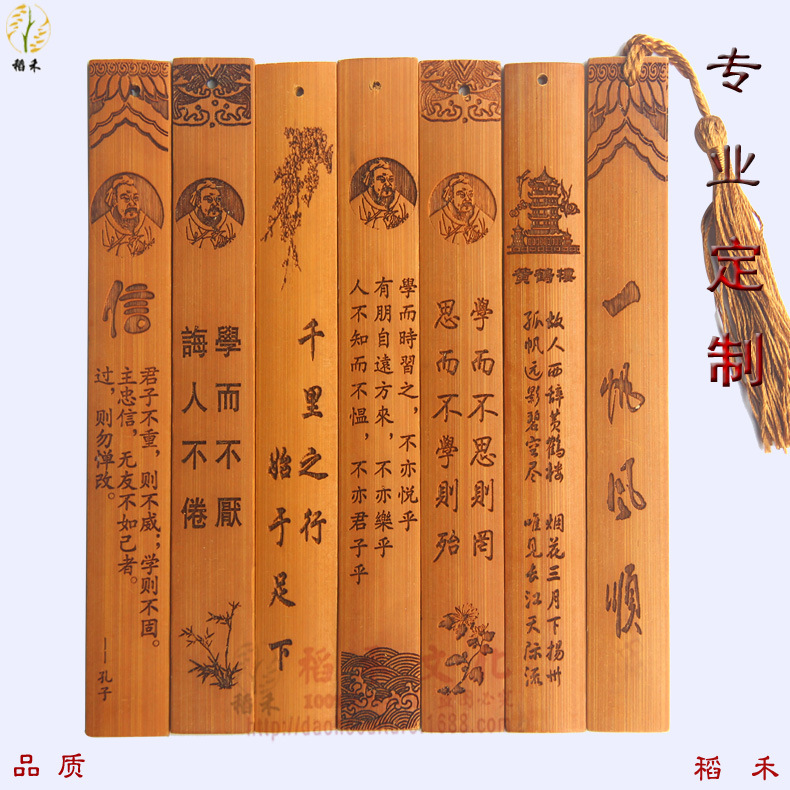 稻禾
专业定制
信
君子不重，则不威；学则不固。
主忠信，无友不如己者。
过，则勿弹改。
——孔子
學而不厭
誨人不倦
千里之行
始于足下
學而時習之，不亦悦乎
有朋自遠方來，不亦樂乎
人不知而不愠，不亦君子乎
學而不思則罔
思而不學則殆
黄鶴樓
故人西辞黄鹤楼 烟花三月下揚州
孤帆远影碧空尽 唯见长江天际流
一帆風順
稻 文化
稻禾
100%
1688.com
品质
稻禾